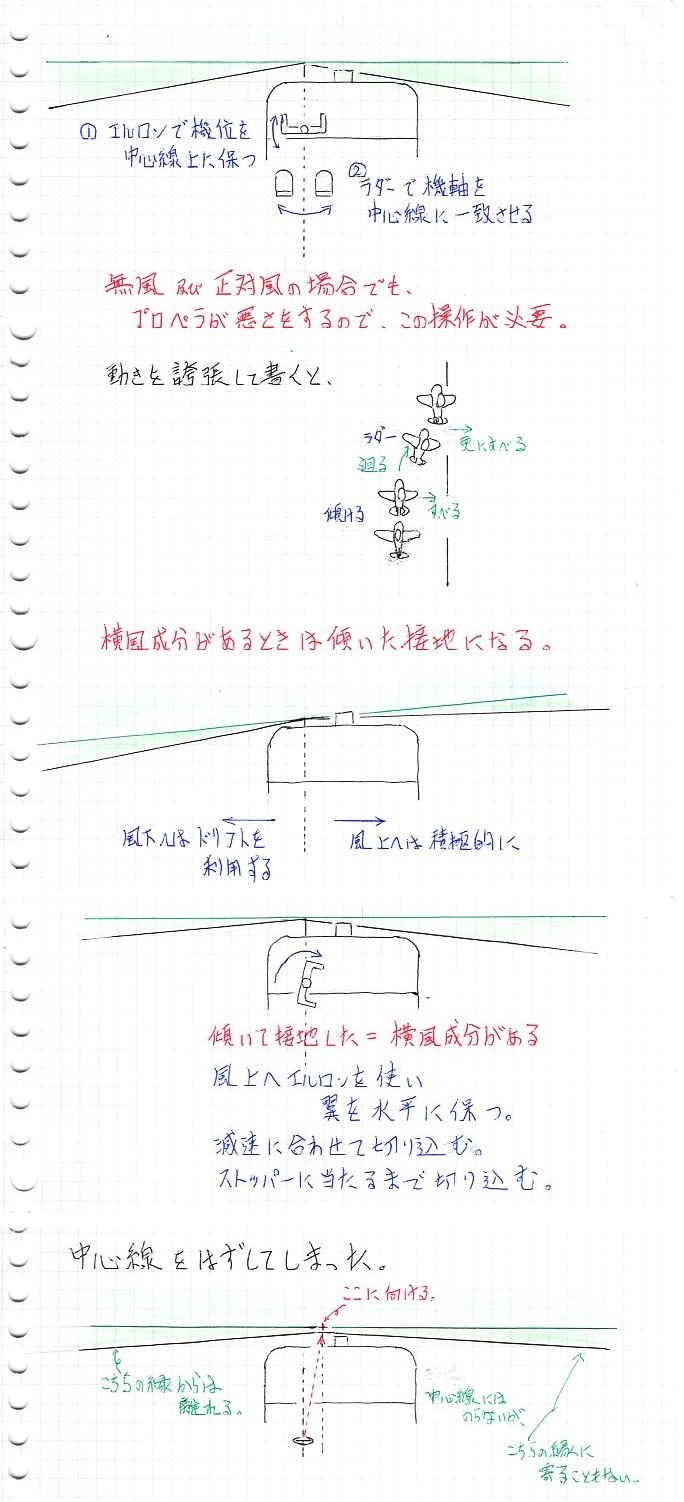 ① エルロンで機位を
中心線上に保つ
② ラダーで機軸を
中心線に一致させる
無風 及び 正対風の場合でも、
プロペラが悪さをするので、この操作が必要。
動きを誇張して書くと、
ラダー
更にすべる
廻る
すべる
傾ける
横風成分があるときは傾いた接地になる。
風下へはドリフトを
利用する
風上へは積極的に
傾いて接地した = 横風成分がある
風上へエルロンを使い
翼を水平に保つ。
減速に合わせて切り込む。
ストッパーに当たるまで切り込む。
中心線をはずしてしまった。
ここに向ける。
こちらの縁からは
離れる。
中心線には
のらないが、
こちらの縁に
寄ることもない..